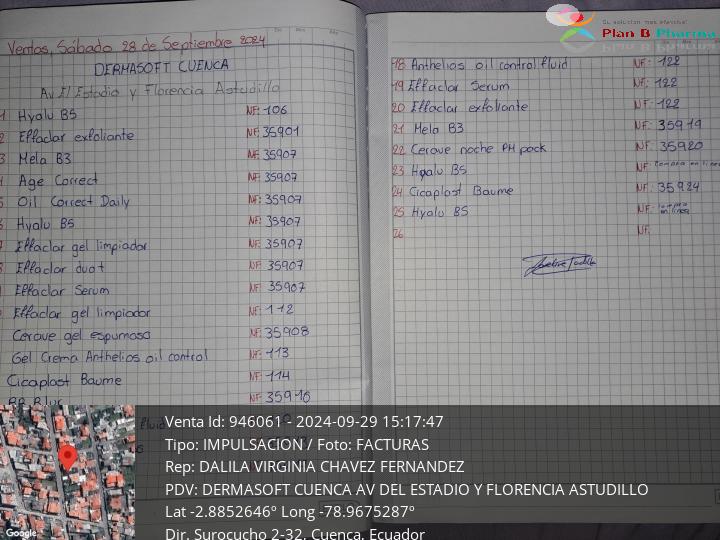 Ventas, Sábado 28 de Septiembre 2024
DERMASOFT CUENCA
Av El Estadio y Florencia Astudillo
1 Hyalu B5 NF: 106
2 Effaclar exfoliante NF: 35901
3 Mela B3 NF: 35907
Age Correct NF: 35907
Oil Correct Daily NF: 35907
Hyalu B5 NF: 35907
Effaclar gel limpiador NF: 35907
Effaclar duo+ NF: 35907
Effaclar Serum NF: 35907
Effaclar gel limpiador NF: 112
Cerave gel espumoso NF: 35908
Gel Crema Anthelios oil control NF: 113
Cicaplast Baume NF: 114
NF: 35910
fluid
Su solución más efectiva!
Plan B Pharma
18 Anthelios oil control fluid NF: 122
19 Effaclar Serum NF: 122
20 Effaclar exfoliante NF: 122
21 Mela B3 NF: 35919
22 Cerave noche PM pack NF: 35920
23 Hyalu B5 NF: compra en linea
24 Cicaplast Baume NF: 35924
25 Hyalu B5 NF: compra en linea
26 NF:
Venta Id: 946061 - 2024-09-29 15:17:47
Tipo: IMPULSACION / Foto: FACTURAS
Rep: DALILA VIRGINIA CHAVEZ FERNANDEZ
PDV: DERMASOFT CUENCA AV DEL ESTADIO Y FLORENCIA ASTUDILLO
Lat -2.8852646° Long -78.9675287°
Dir. Surocucho 2-32, Cuenca, Ecuador
Google